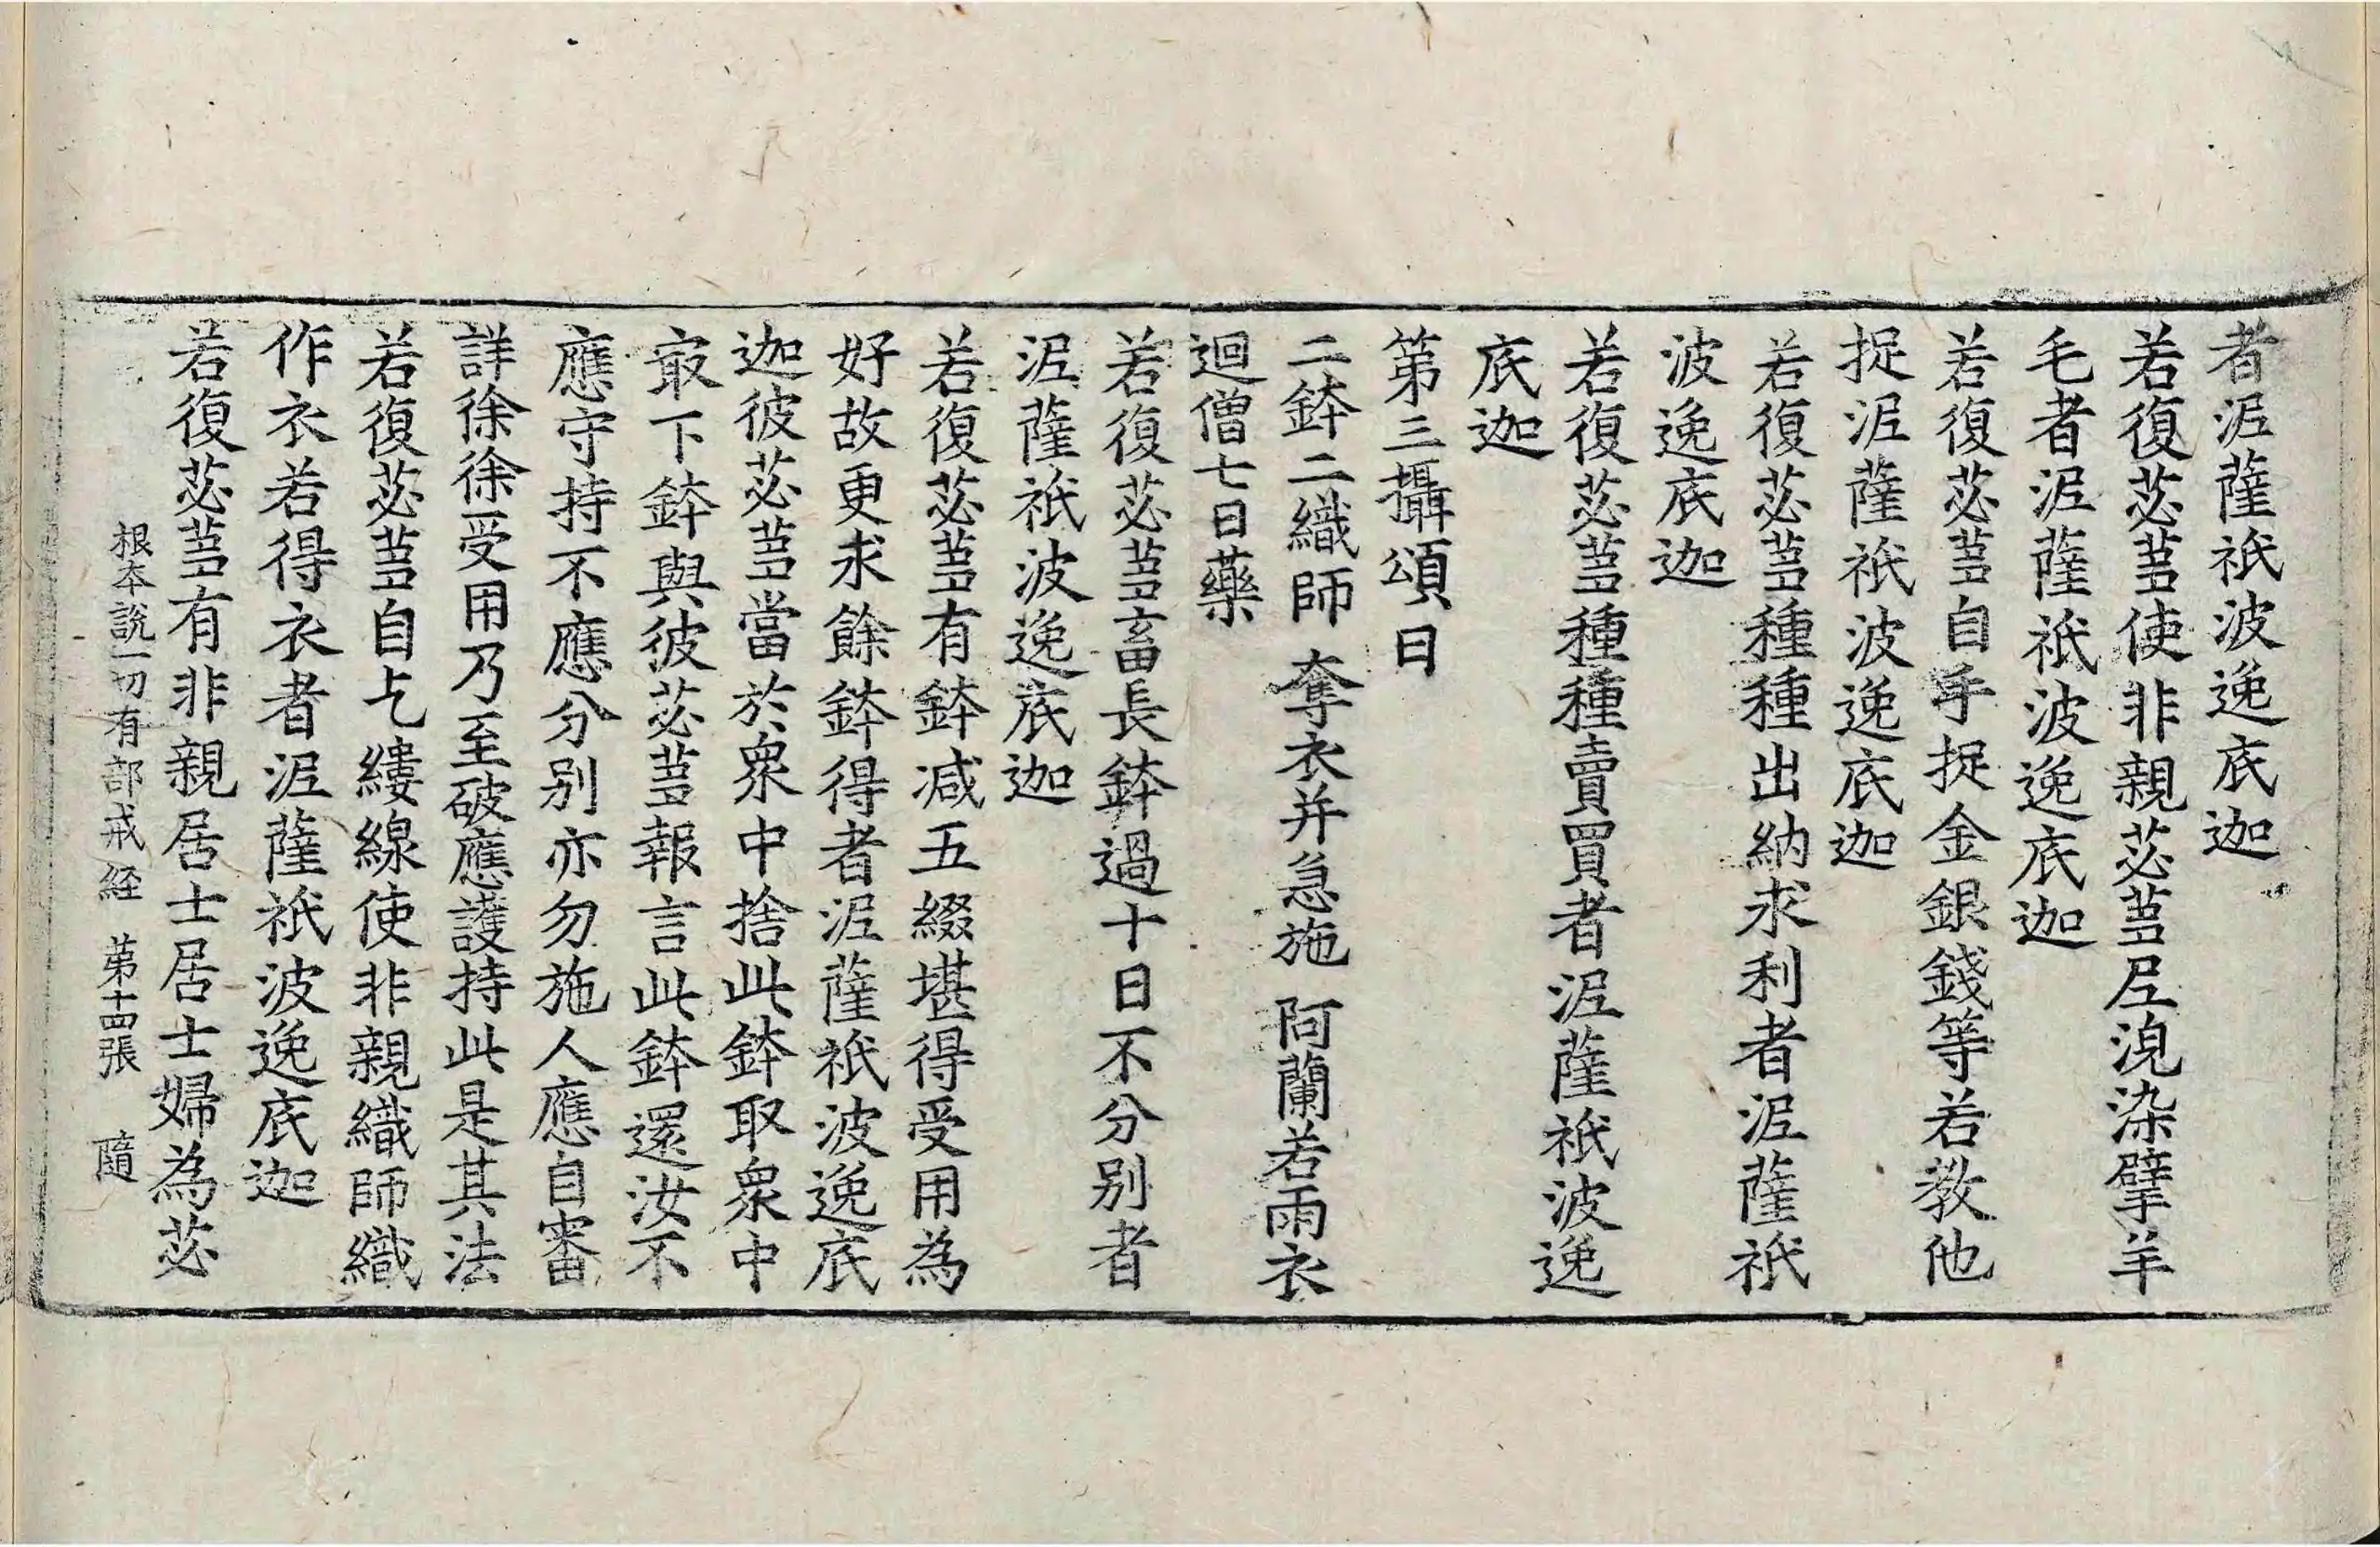 者泥薩祇波逸底迦
若復苾芻使非親苾芻尼浣染擘羊
毛者泥薩祇波逸底迦
若復苾芻自手捉金銀錢等若教他
捉泥薩祇波逸底迦
若復苾芻種種出納求利者泥薩祇
波逸底迦
若復苾芻種種賣買者泥薩祇波逸
底迦
第三攝頌曰
二鉢二織師 奪衣并急施 阿蘭若雨衣
迴僧七日藥
若復苾芻畜長鉢過十日不分別者
泥薩祇波逸底迦
若復苾芻有鉢減五綴堪得受用為
好故更求餘鉢得者泥薩祇波逸底
迦彼苾芻當於眾中捨此鉢取眾中
最下鉢與彼苾芻報言此鉢還汝不
應守持不應分別亦勿施人應自審
詳徐徐受用乃至破應護持此是其法
若復苾芻自乞縷線使非親織師織
作衣若得衣者泥薩祇波逸底迦
若復苾芻有非親居士居士婦為苾
根本說一切有部戒経 第十四張 隨